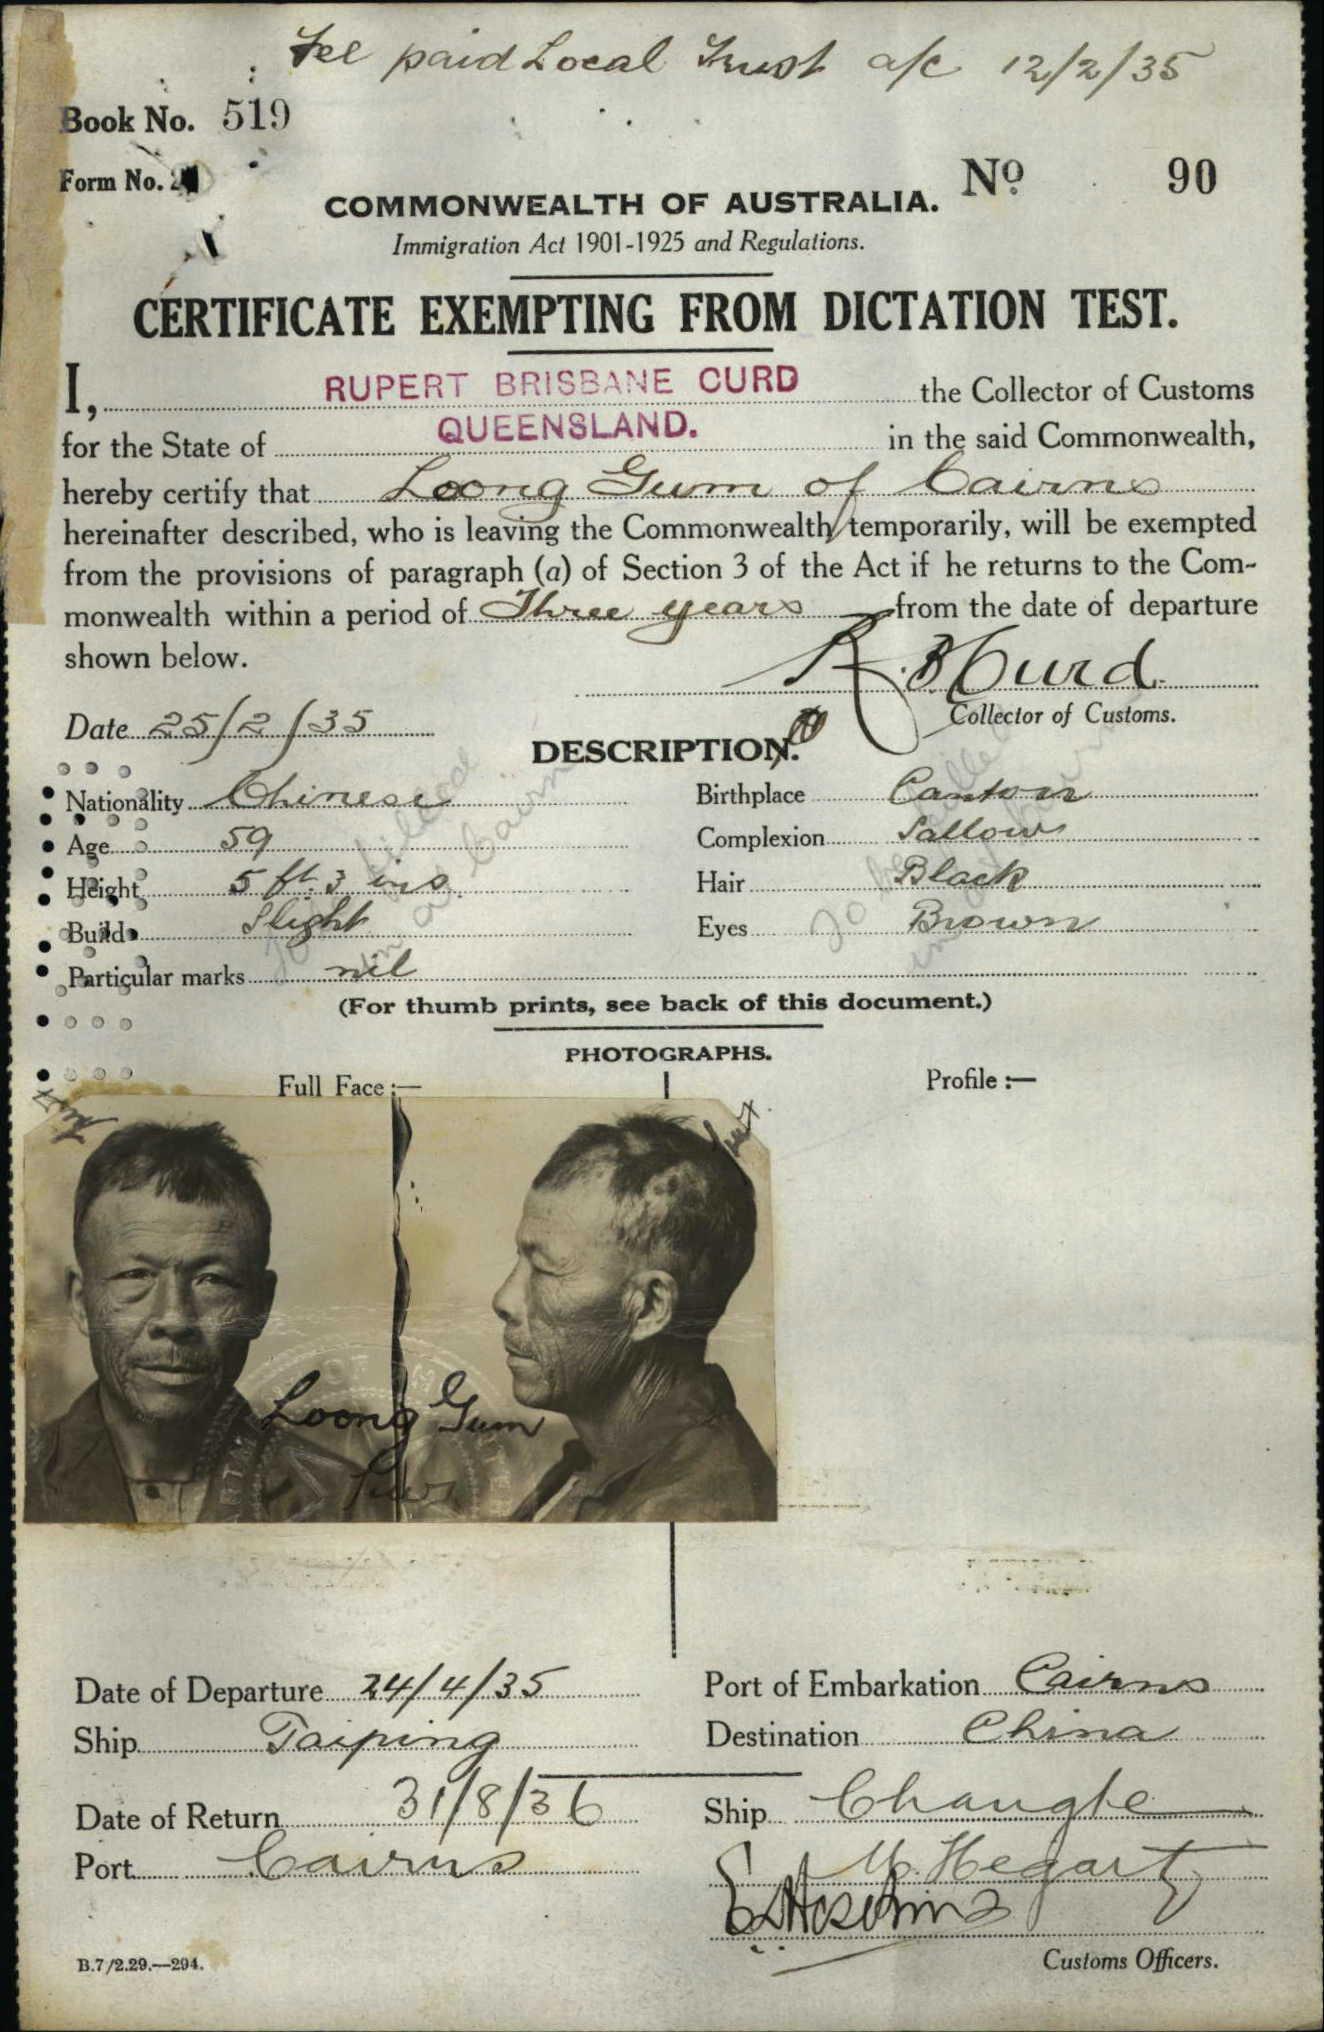 Fee paid Local Trust a/c 12/2/35
Book No. 519
Form No. 21
No 90
COMMONWEALTH OF AUSTRALIA.
Immigration Act 1901-1925 and Regulations.
CERTIFICATE EXEMPTING FROM DICTATION TEST.
I, RUPERT BRISBANE CURD the Collector of Customs
for the State of QUEENSLAND. in the said Commonwealth,
hereby certify that Loong Gum of Cairns
hereinafter described, who is leaving the Commonwealth temporarily, will be exempted
from the provisions of paragraph (a) of Section 3 of the Act if he returns to the Com-
monwealth within a period of Three years from the date of departure
shown below.
R. B Curd
Date 25/2/35
Collector of Customs.
DESCRIPTION.
Nationality Chinese Birthplace Canton
Age 59 Complexion Sallow
Height 5 ft. 3 ins Hair Black
Build Slight Eyes Brown
Particular marks nil
To be filled
in at Cairns
To be filled
in at Cairns
(For thumb prints, see back of this document.)
PHOTOGRAPHS.
Full Face :— Profile :—
Loong Gum
Date of Departure 24/4/35 Port of Embarkation Cairns
Ship Taiping Destination China
Date of Return 31/8/36 Ship Changte
Port Cairns
Hegarty
Customs Officers.
B.7/2.29.—294.